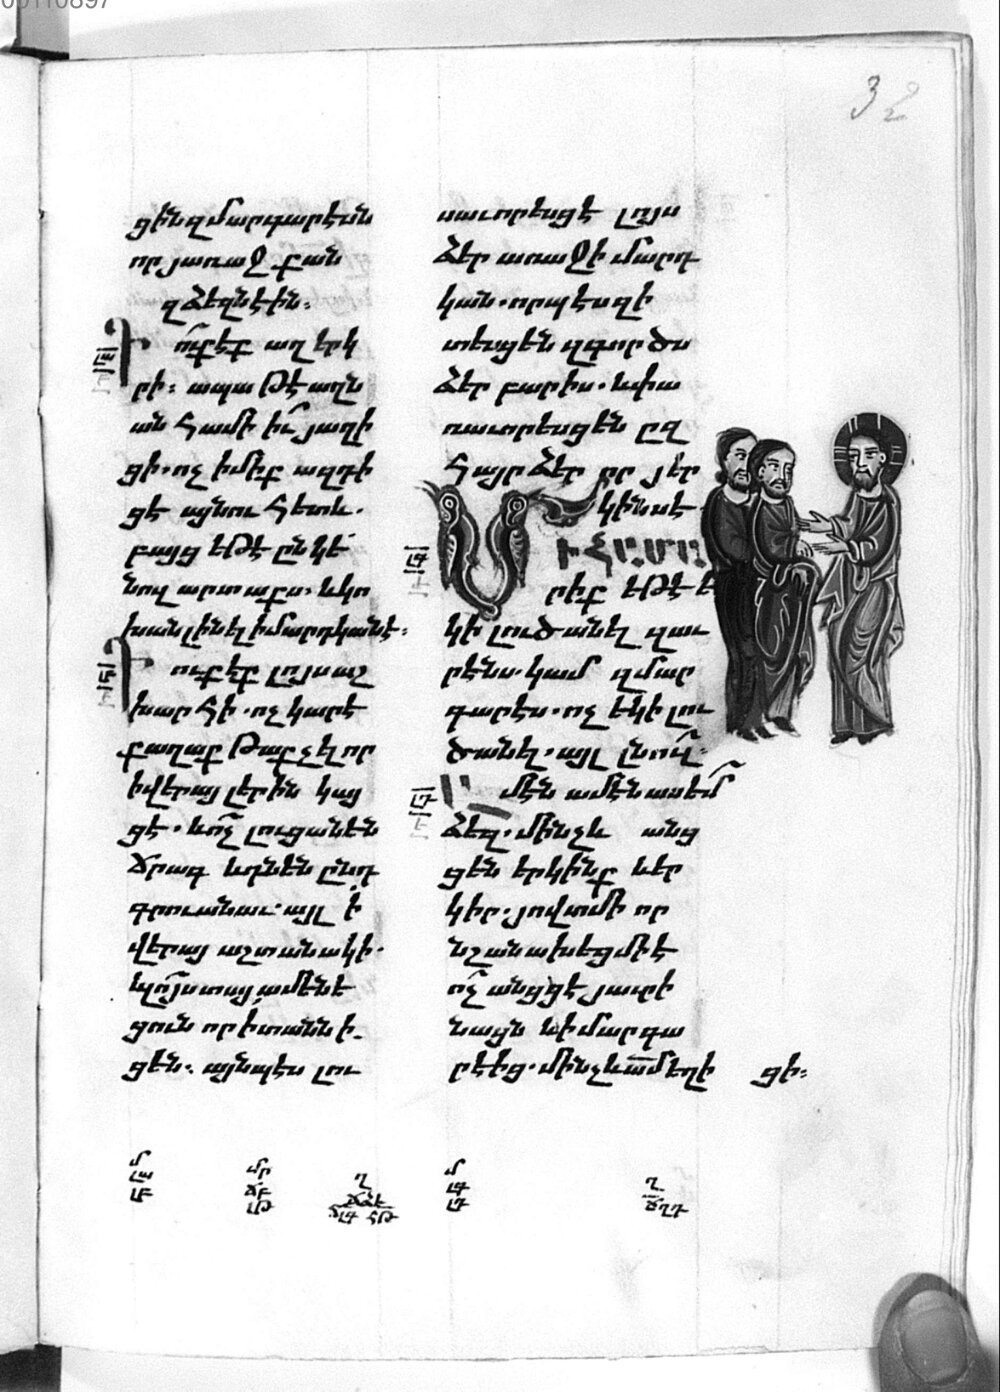 ցին զմարգարէսն
որ յառաջ քան
զձեզն էին։
ո՛ւքէք աղ երկ
րի։ ապա թէ աղն
ան համի իւ՛ յաղի
ցի. ոչ իմիք ազդի
ցէ այնու հետև.
բայց եթէ ընկե՛
նուլ արտաքս, և կո
խան լինել ի մարդկանէ։
ուքէք լոյս աշ
խարհի. ոչ կարէ
քաղաք թաքչել որ
ի վերայ լերին կայ
ցէ. և ո՛չ լուցանեն
ճրագ և դնեն ընդ
գրուանաւ. այլ ի՛
վերայ աշտանակի.
և լո՛յս տայ ամենե
ցուն որ ի տանն ի
ցեն. այնպէս լու
սաւորեսցէ լոյս
ձեր առաջի մարդ
կան. որպէսզի
տեսցեն զգործս
ձեր բարիս. և փա
ռաւորեսցեն ըզ
հայր ձեր որ յեր
կինս է
Մ
Ի ՀԱՄԱ
րիք եթէ ե
կի լուծանել զաւ
րէնս. կամ զմար
գարէս. ոչ եկի լու
ծանել. այլ լնո՛ւլ։
Ա
մէն ասեմ
ձեզ. մինչև անց
ցեն երկինք և եր
կիր. յովտ մի որ
նշանախեց մի է
ո՛չ անցցէ յաւրի
նացն և ի մարգա
րէից. մինչև ամենայն եղի ցի։
32